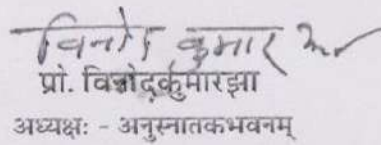 विनोद कुमार झा
प्रो. विनोदकुमारझा
अध्यक्षः - अनुस्नातकभवनम्